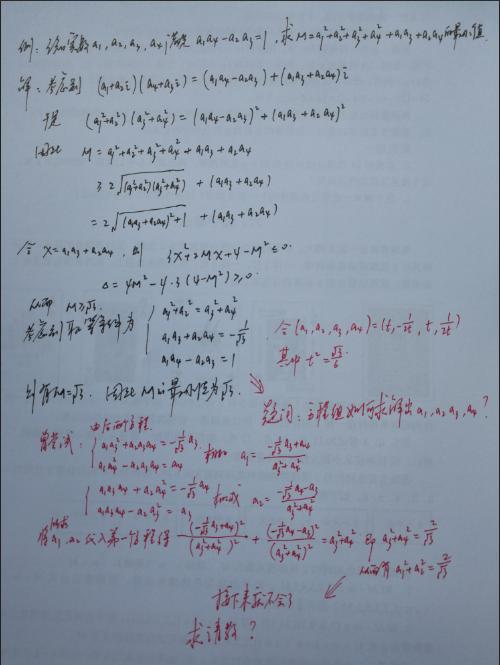 例：给定实数a₁,a₂,a₃,a₄满足a₁a₄-a₂a₃=1，求M=a₁²+a₂²+a₃²+a₄²+a₁a₃+a₂a₄的最小值.
解：考虑到 (a₁+a₂i)(a₄+a₃i)=(a₁a₄-a₂a₃)+(a₁a₃+a₂a₄)i
于是 (a₁²+a₂²)(a₃²+a₄²)=(a₁a₄-a₂a₃)²+(a₁a₃+a₂a₄)²
因此 M=a₁²+a₂²+a₃²+a₄²+a₁a₃+a₂a₄
≥2√((a₁²+a₂²)(a₃²+a₄²)) +(a₁a₃+a₂a₄)
=2√((a₁a₃+a₂a₄)²+1) +(a₁a₃+a₂a₄)
令 x=a₁a₃+a₂a₄，则 3x²+2Mx+4-M²≤0.
Δ=4M²-4·3(4-M²)≥0.
从而 M≥√3.
考虑到取等条件为
{ a₁²+a₂²=a₃²+a₄²
a₁a₃+a₂a₄=-1/√3
a₁a₄-a₂a₃=1
令(a₁,a₂,a₃,a₄)=(t,-1/2t,t,1/2t)
其中 t²=√3/6.
则有M=√3. 因此M的最小值为√3.
疑问：方程组如何求解出a₁,a₂,a₃,a₄?
曾尝试：由后两方程.
{ a₁a₃²+a₂a₃a₄=-1/√3 a₃
a₁a₄²-a₂a₃a₄=a₄
相加 a₁=(-1/√3 a₃+a₄)/(a₃²+a₄²)
{ a₁a₃a₄+a₂a₄²=-1/√3 a₄
a₁a₃a₄-a₂a₃²=a₃
相减 a₂=(-1/√3 a₄-a₃)/(a₃²+a₄²)
将所求a₁,a₂代入第一方程得 (-1/√3 a₃+a₄)²/(a₃²+a₄²)²+(-1/√3 a₄-a₃)²/(a₃²+a₄²)²=a₃²+a₄² 即 a₃²+a₄²=2/√3
从而有 a₁²+a₂²=2/√3
接下来就不会了
求请教？